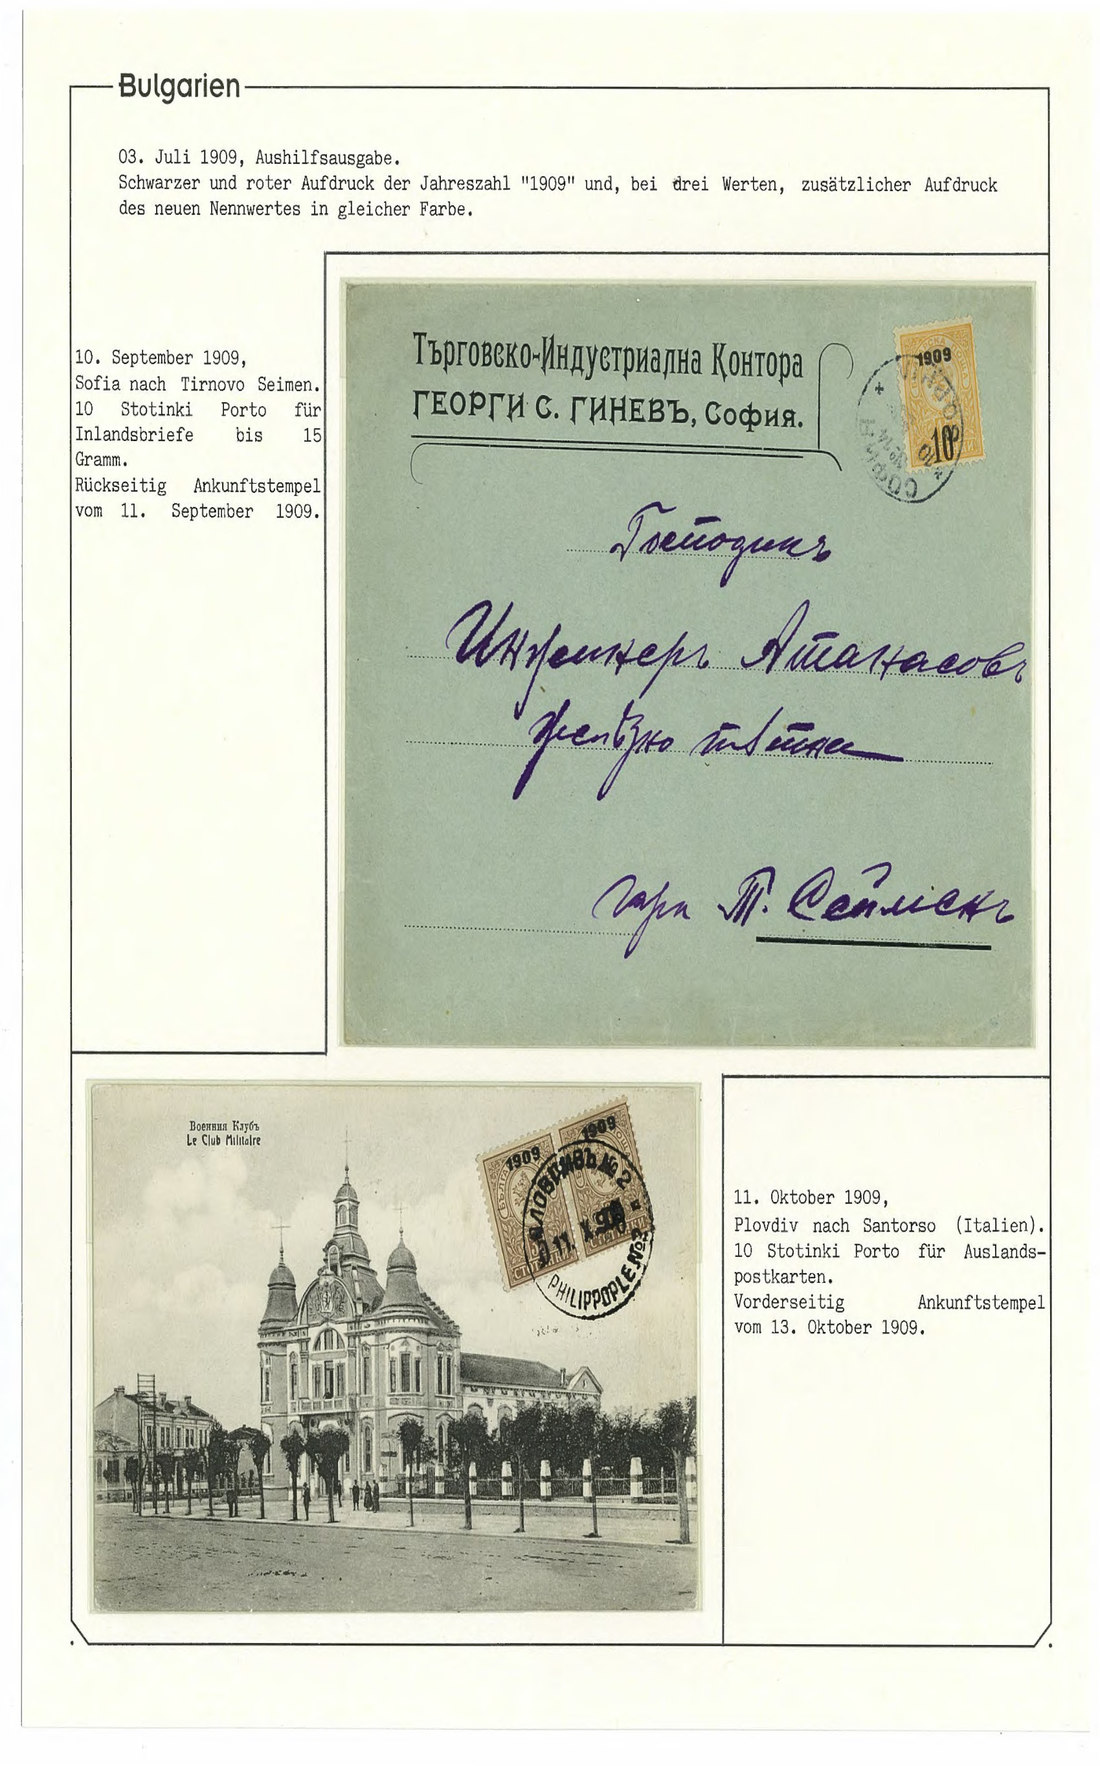 Bulgarien
03. Juli 1909, Aushilfsausgabe.
Schwarzer und roter Aufdruck der Jahreszahl "1909" und, bei drei Werten, zusätzlicher Aufdruck
des neuen Nennwertes in gleicher Farbe.
10. September 1909,
Sofia nach Tirnovo Seimen.
10 Stotinki Porto für
Inlandsbriefe bis 15
Gramm.
Rückseitig Ankunftstempel
vom 11. September 1909.
Търговско-Индустриална Контора
ГЕОРГИ С. ГИНЕВЪ, София.
1909
10
СОФИЯ
Господинъ
Инженеръ Атанасовъ
гара Т. Сейменъ
Военния Клубъ
Le Club Militaire
1909
1909
ПЛОВДИВЪ № 2
11. X. 909
PHILIPPOPLE № 2
11. Oktober 1909,
Plovdiv nach Santorso (Italien).
10 Stotinki Porto für Auslands-
postkarten.
Vorderseitig Ankunftstempel
vom 13. Oktober 1909.